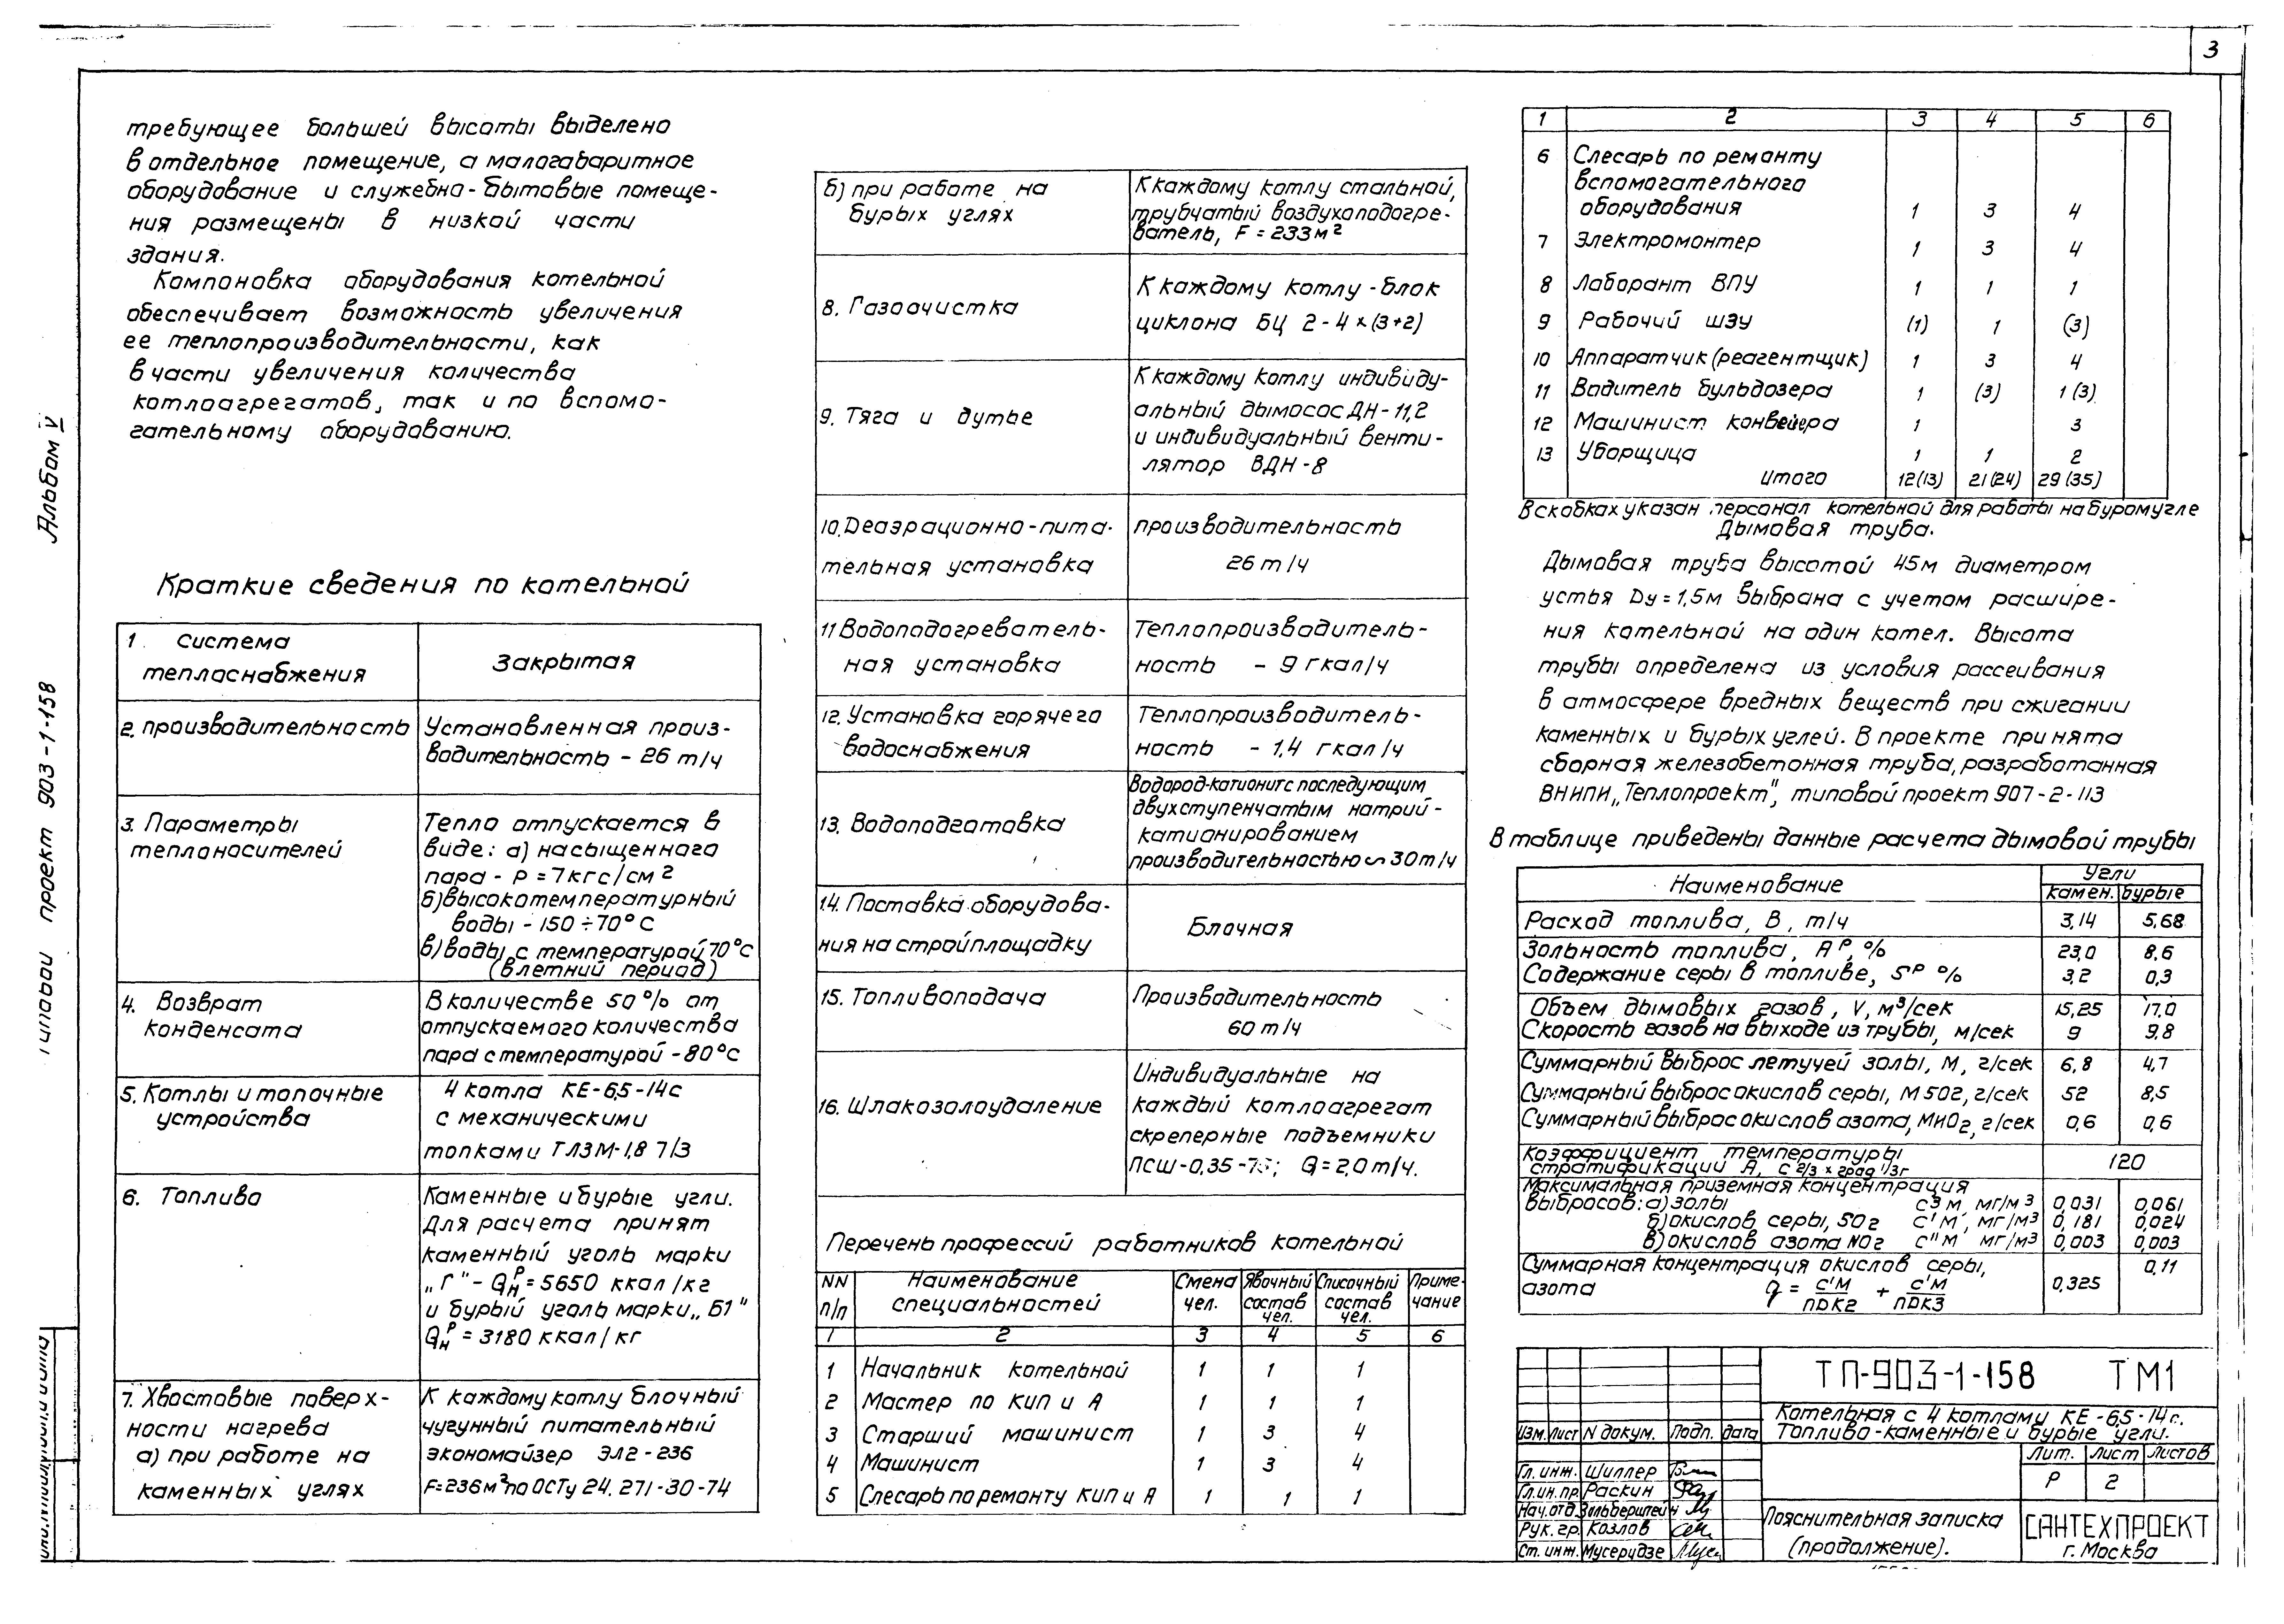 3
Альбом V
Типовой проект 903-1-158
требующее большей высоты выделено
в отдельное помещение, а малогабаритное
оборудование и служебно-бытовые помеще-
ния размещены в низкой части
здания.
Компоновка оборудования котельной
обеспечивает возможность увеличения
ее теплопроизводительности, как
в части увеличения количества
котлоагрегатов, так и по вспомо-
гательному оборудованию.
Краткие сведения по котельной
1. Система
теплоснабжения
Закрытая
2. производительность
Установленная произ-
водительность - 26 т/ч
3. Параметры
теплоносителей
Тепло отпускается в
виде: а) насыщенного
пара - Р = 7 кгс/см2
б) высокотемпературный
воды - 150÷70°С
в) воды с температурой 70°С
(в летний период)
4. Возврат
конденсата
В количестве 50% от
отпускаемого количества
пара с температурой - 80°С
5. Котлы и топочные
устройства
4 котла КЕ-6,5-14с
с механическими
топками ТЛЗМ-1,8 7/3
6. Топливо
Каменные и бурые угли.
Для расчета принят
каменный уголь марки
„Г" - Qнр = 5650 ккал/кг
и бурый уголь марки „Б1"
Qнр = 3180 ккал/кг
7. Хвостовые поверх-
ности нагрева
а) при работе на
каменных углях
К каждому котлу блочный
чугунный питательный
экономайзер ЭЛ2-236
F=236м2 по ОСТу 24.271-30-74
б) при работе на
бурых углях
К каждому котлу стальной,
трубчатый воздухоподогре-
ватель, F = 233 м2
8. Газоочистка
К каждому котлу - блок
циклона БЦ 2-4×(3+2)
9. Тяга и дутье
К каждому котлу индивиду-
альный дымосос ДН-11,2
и индивидуальный венти-
лятор ВДН-8
10. Деаэрационно-пита-
тельная установка
производительность
26 т/ч
11 Водоподогреватель-
ная установка
Теплопроизводитель-
ность - 9 гкал/ч
12. Установка горячего
водоснабжения
Теплопроизводитель-
ность - 1,4 гкал/ч
13. Водоподготовка
Водород-катионит с последующим
двухступенчатым натрий-
катионированием
производительностью ~ 30 т/ч
14. Поставка оборудова-
ния на стройплощадку
Блочная
15. Топливоподача
Производительность
60 т/ч
16. Шлакозолоудаление
Индивидуальные на
каждый котлоагрегат
скреперные подъемники
ПСШ-0,35-75; Q = 2,0 т/ч.
Перечень профессий работников котельной
NN п/п Наименование специальностей Смена чел. Явочный состав чел. Списочный состав чел. Приме-чание
1 2 3 4 5 6
1 Начальник котельной 1 1 1
2 Мастер по КИП и А 1 1 1
3 Старший машинист 1 3 4
4 Машинист 1 3 4
5 Слесарь по ремонту КИП и А 1 1 1
1 2 3 4 5 6
6 Слесарь по ремонту
вспомогательного
оборудования 1 3 4
7 Электромонтер 1 3 4
8 Лаборант ВПУ 1 1 1
9 Рабочий ШЗУ (1) 1 (3)
10 Аппаратчик (реагентщик) 1 3 4
11 Водитель бульдозера 1 (3) 1 (3)
12 Машинист конвейера 1 3
13 Уборщица 1 1 2
Итого 12(13) 21(24) 29(35)
В скобках указан персонал котельной для работы на буром угле
Дымовая труба.
Дымовая труба высотой 45м диаметром
устья Dу = 1,5м выбрана с учетом расшире-
ния котельной на один котел. Высота
трубы определена из условия рассеивания
в атмосфере вредных веществ при сжигании
каменных и бурых углей. В проекте принята
сборная железобетонная труба, разработанная
ВНИПИ „Теплопроект", типовой проект 907-2-113
В таблице приведены данные расчета дымовой трубы
Наименование Угли
камен. бурые
Расход топлива, В, т/ч 3,14 5,68
Зольность топлива, Ар, % 23,0 8,6
Содержание серы в топливе, Sр % 3,2 0,3
Объем дымовых газов, V, м3/сек 15,25 17,0
Скорость газов на выходе из трубы, м/сек 9 9,8
Суммарный выброс летучей золы, М, г/сек 6,8 4,7
Суммарный выброс окислов серы, М SO2, г/сек 52 8,5
Суммарный выброс окислов азота, МNO2, г/сек 0,6 0,6
Коэффициент температуры
стратификации А, с 2/3 × град 1/3 г 120
Максимальная приземная концентрация
выбросов: а) золы СЗ М мг/м3 0,031 0,061
б) окислов серы, SO2 С'М, мг/м3 0,181 0,024
в) окислов азота NO2 С"М мг/м3 0,003 0,003
Суммарная концентрация окислов серы, 0,11
азота q = С'М/ПДК2 + С'М/ПДК3 0,325
ТП-903-1-158 ТМ1
Котельная с 4 котлами КЕ-6,5-14с.
Топливо-каменные и бурые угли.
Изм. Лист N докум. Подп. Дата
Лит. Лист Листов
Р 2
Гл. инж. Шиллер
Гл.ин.пр. Раскин
Нач.отд. Зильберштейн
Рук. гр. Козлов
Ст. инж. Мусеридзе
Пояснительная записка
(продолжение).
САНТЕХПРОЕКТ
г. Москва